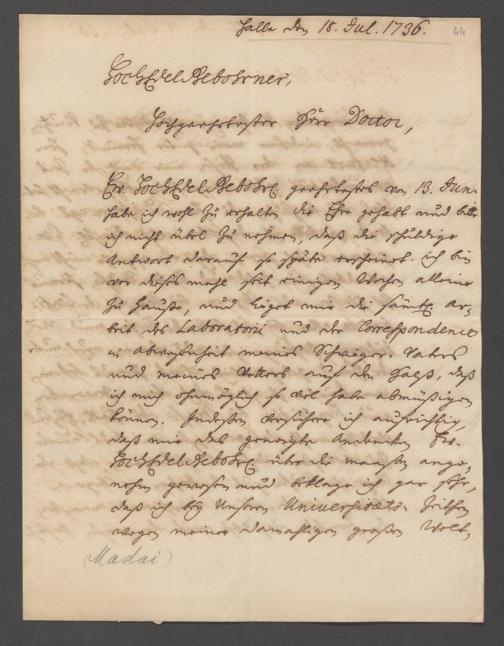 Halle den 18. Jul. 1736.
44
HochEdelGebohrner,
Hochgeehrtester Herr Doctor,
Ew. HochEdelGebohr geehrtestes vom 13. Jun.
habe ich wohl zu erhalten die Ehre gehabt und bitte
ich nicht übel zu nehmen, daß die schuldige
Antwort darauf so späte erscheinet. ich bin
vor dieses mahl seit einigen Wochen alleine
zu Hause, und lieget mir die sämtl Ar-
beit des Laboratorii und der Correspondence
in Abwesenheit meines Schwieger-Vaters
und meines Vetters auf dem Halse, daß
ich mich ohnmöglich so viel habe abmüßigen
können. Indeßen versichere ich aufrichtig,
daß mir das geneigte Andencken Ew.
HochEdelGebohr über die maaßen ange-
nehm gewesen und beklage ich gar sehr,
daß ich bey unseren Universitäts-Zeiten
wegen meiner damahligen großen Welt-
(Madai)